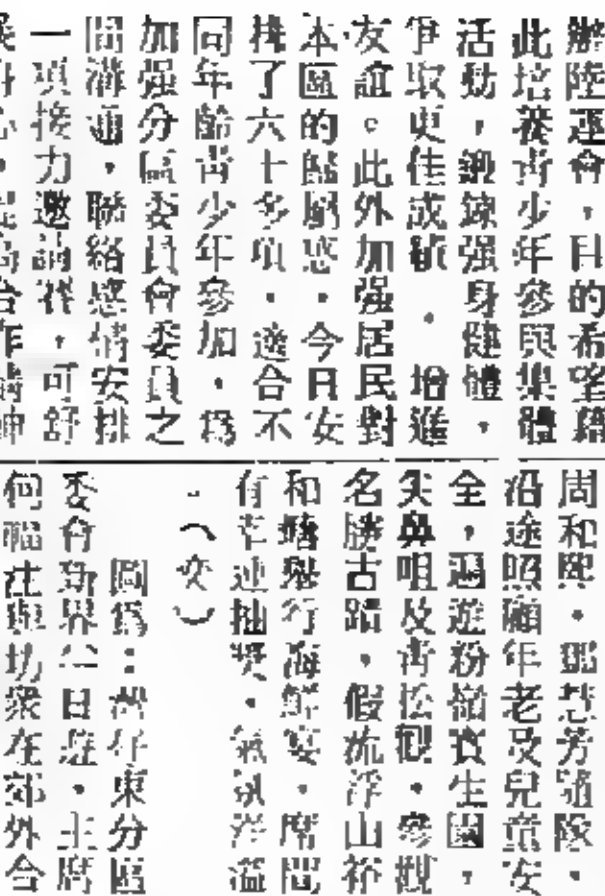 辦陸運會，目的希望藉
此培養青少年參與集體
活動，鍛鍊强身健體，
爭取更佳成績。增進
友誼。此外加强居民對
本區的歸屬感。今日安
排了六十多項，適合不
同年齡青少年參加，為
加强分區委員會委員之
間溝通，聯絡感情安排
一項接力邀請賽，可舒
展身心，提高合作精神
周和熙，鄧慧芳隨隊，
沿途照顧年老及兒童安
全，遍遊粉嶺寶生園，
尖鼻咀及青松觀，參觀
名勝古蹟，假流浮山裕
和塘舉行海鮮宴，席間
有幸運抽獎，氣氛洋溢
。（奕）
圖爲：灣仔東分區
委會新界一日遊，主席
何福注與坊衆在郊外合